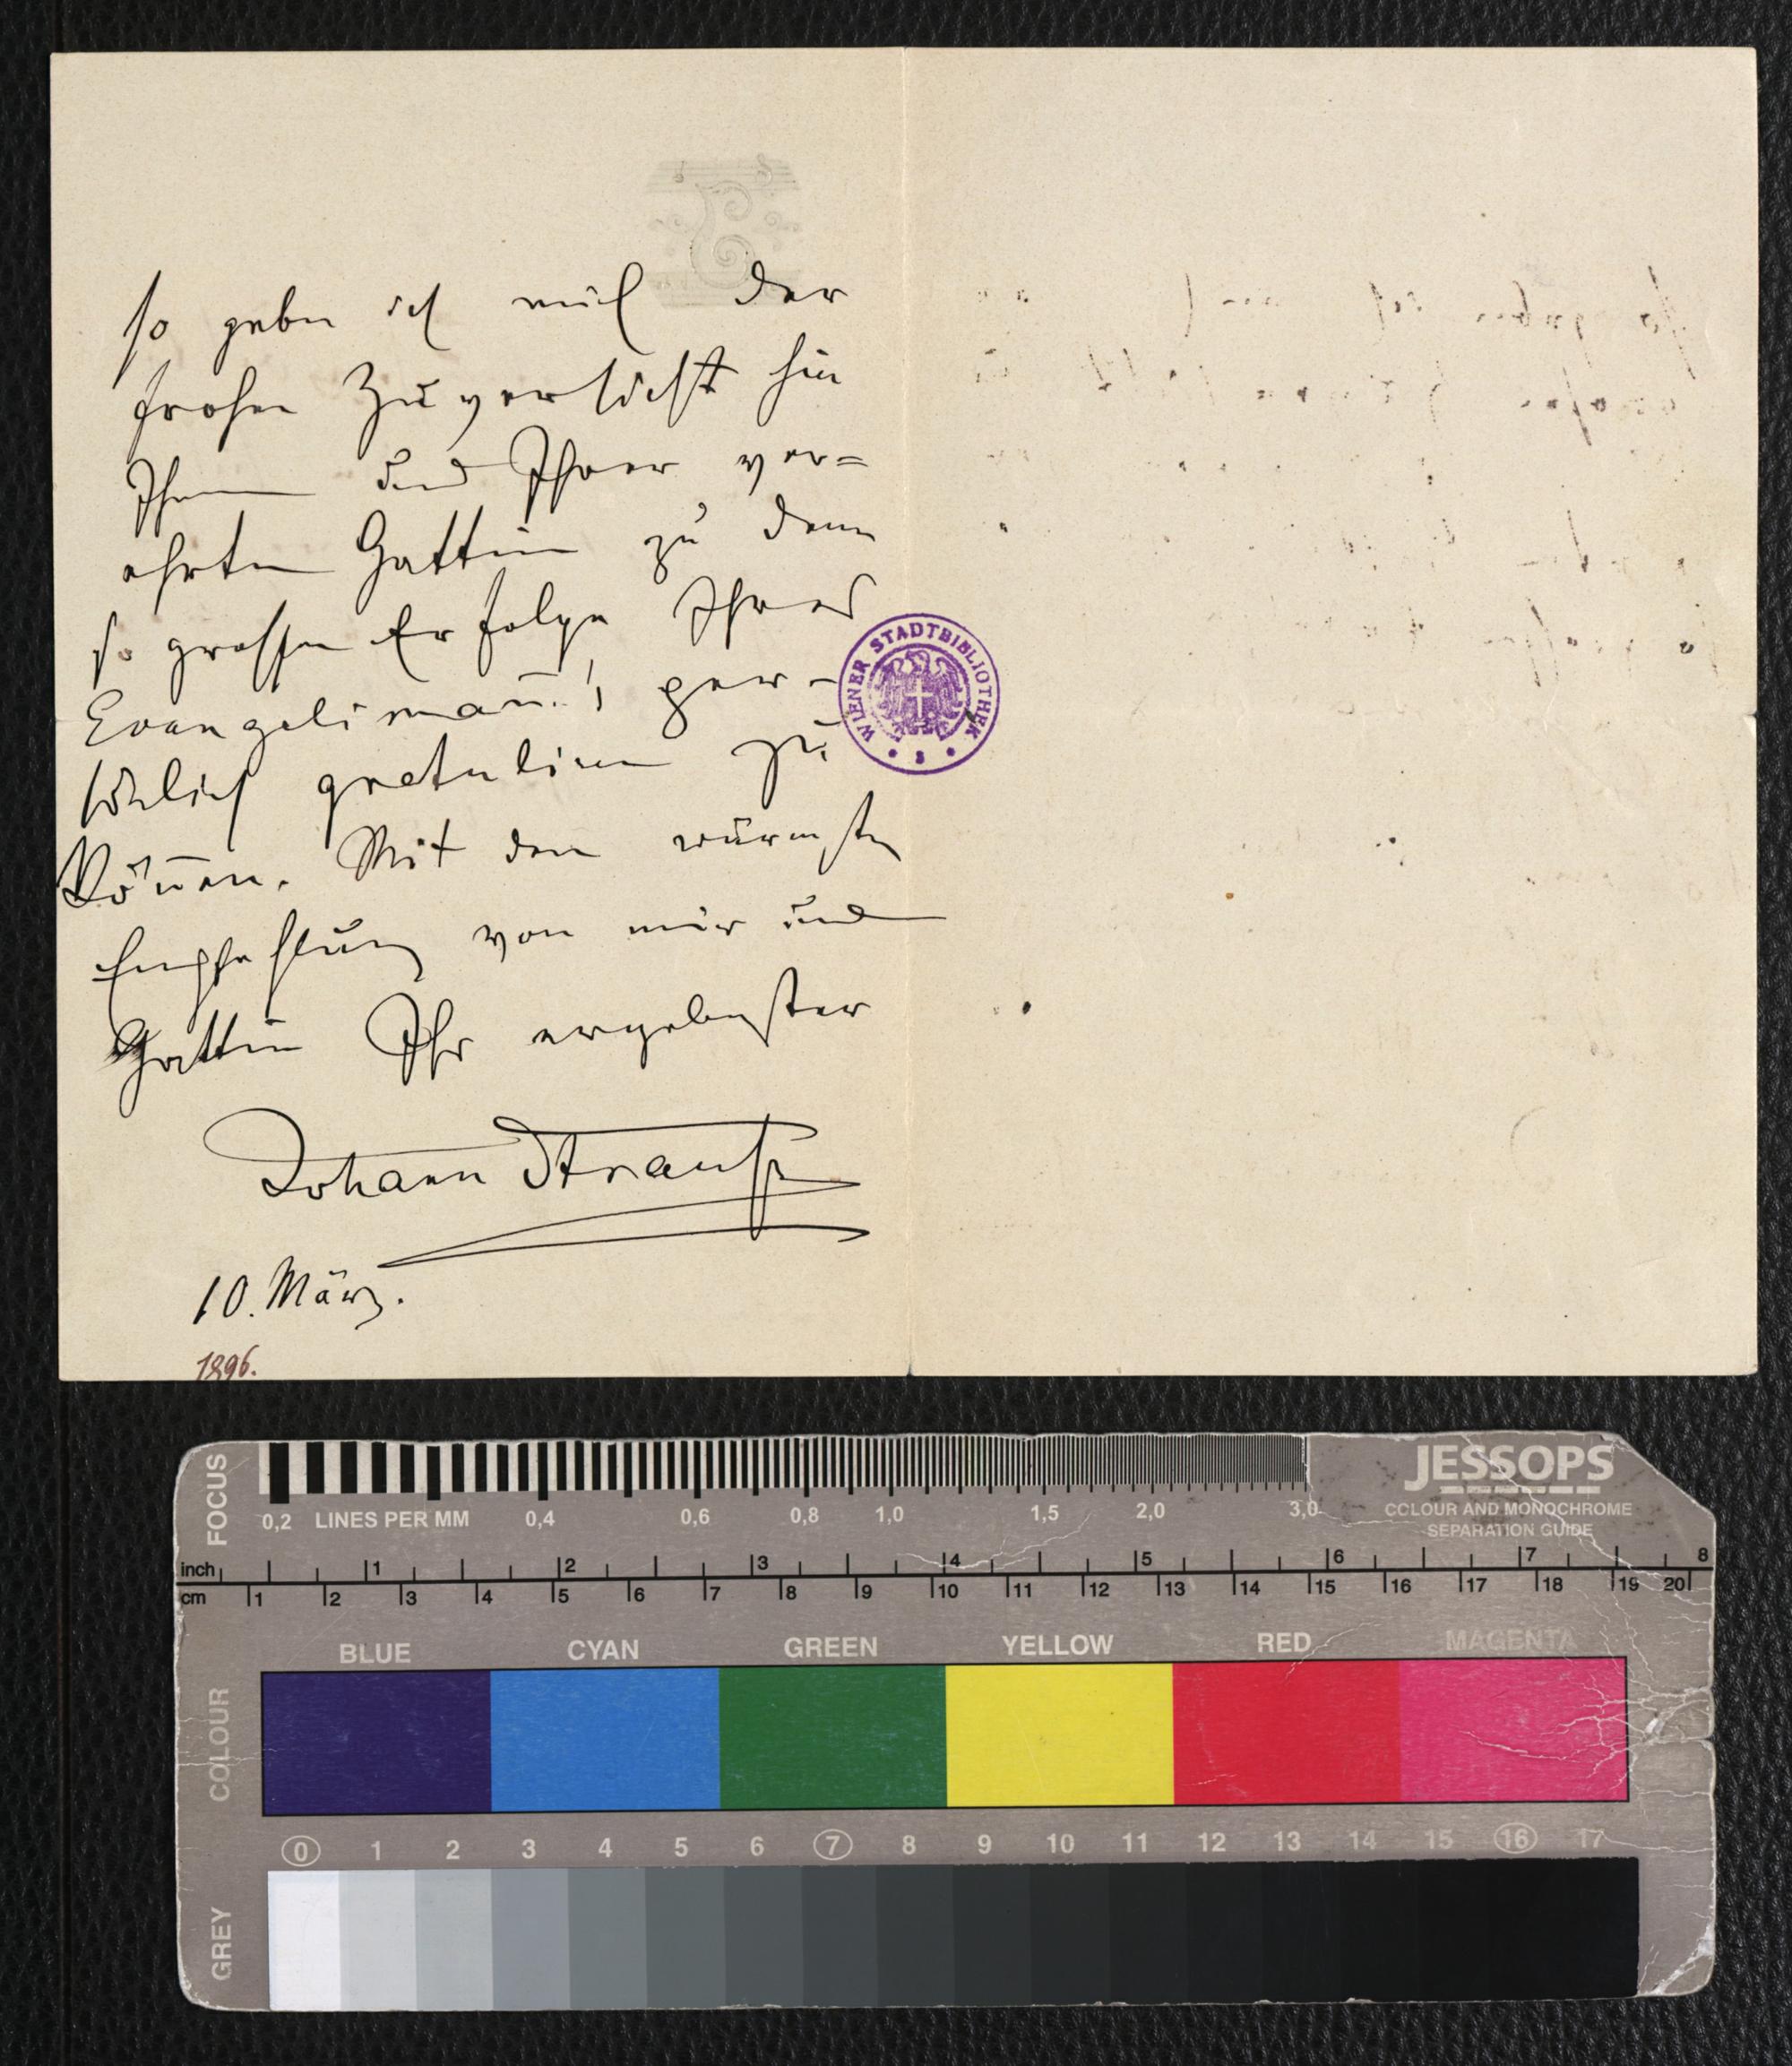 so gebe ich mich der
frohen Zuversicht hin
Ihnen und Ihrer ver=
ehrten Gattin zu dem
so grossen Erfolge Ihres
Evangelimañ! per-
sönlich gratuliren zu
kön̄en. Mit den wärmsten
Empfehlung von mir und
Gattin Ihr ergebenster
Johann Strauß
10. März.
1896.
WIENER STADTBIBLIOTHEK
FOCUS
0,2 LINES PER MM 0,4 0,6 0,8 1,0 1,5 2,0 3,0
JESSOPS
COLOUR AND MONOCHROME
SEPARATION GUIDE
inch 1 2 3 4 5 6 7 8
cm 1 2 3 4 5 6 7 8 9 10 11 12 13 14 15 16 17 18 19 20
BLUE CYAN GREEN YELLOW RED MAGENTA
COLOUR
0 1 2 3 4 5 6 7 8 9 10 11 12 13 14 15 16 17
GREY